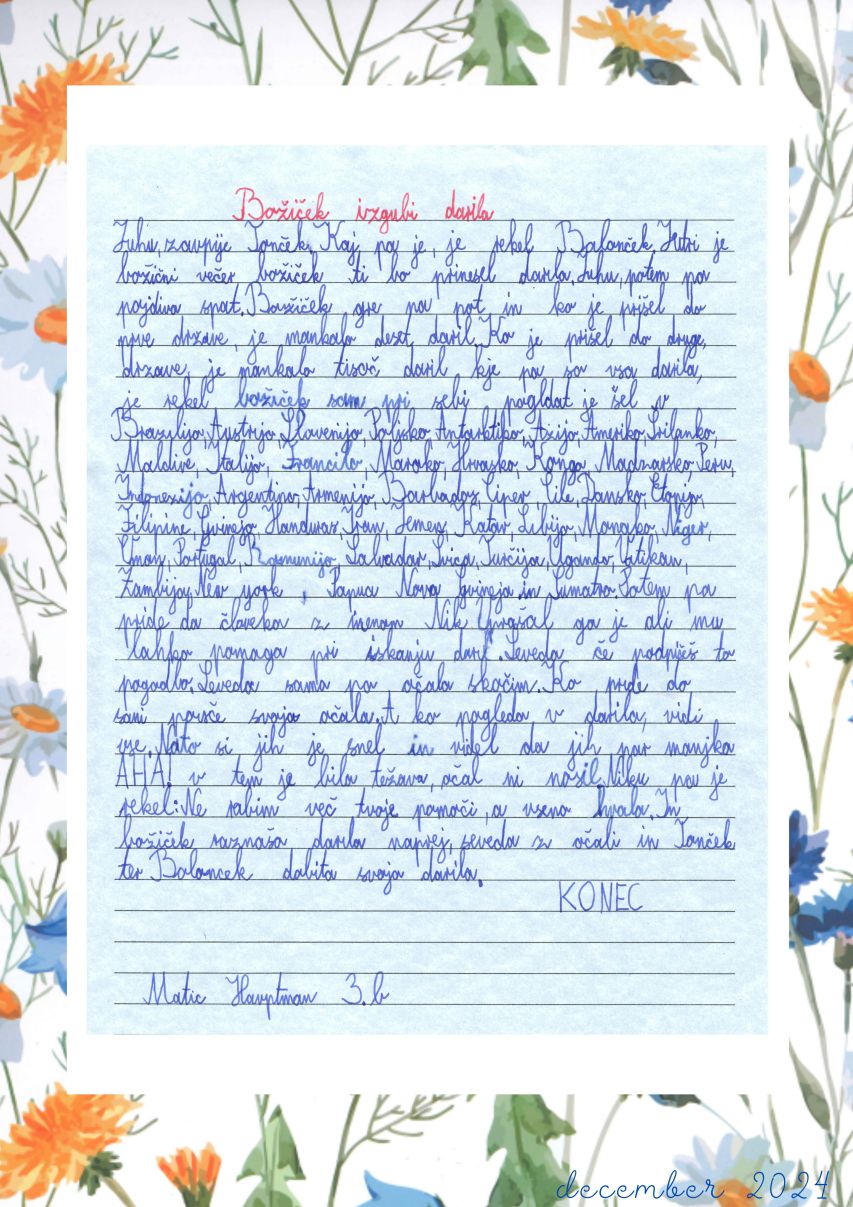 Božiček izgubi darila
Juhu, zavpije Tonček. Kaj pa je, je rekel Balonček. Jutri je
božični večer božiček ti bo prinesel darila. Juhu, potem pa
pojdiva spat. Božiček gre na pot in ko je prišel do
prve države, je mankalo deset daril. Ko je prišel do druge,
države, je mankalo tisoč daril kje pa so vsa darila,
je rekel božiček sam pri sebi pogldat je šel v
Brazilijo, Austrijo, Slovenijo, Poljsko, Antarktiko, Azijo, Ameriko, Šrilanko,
Maldive, Italijo, Francilo, Maroko, Hrvasko, Kongo, Madžarsko, Peru,
Indonezijo, Argentino, Armenijo, Barbados, Ciper, Čile, Dansko, Etopijo,
Filipine, Gvinejo, Honduras, Iran, Jemen, Katar, Libijo, Monako, Niger,
Oman, Portugal, Romunijo, Salvador, Švica, Turčija, Ugando, Vatikan,
Zambijo, New york, Papua Nova Gvineja in Sumatra. Potem pa
pride do človeka z imenom Nik. Vprašal ga je ali mu
lahko pomaga pri iskanju daril. Seveda če podpišeš to
pogodbo. Seveda samo po očala skočim. Ko pride do
sani poišče svoja očala. A ko pogleda v darila, vidi
vse. Nato si jih je snel in videl da jih par manjka
AHA! v tem je bila težava, očal ni nosil. Niku pa je
rekel: Ne rabim več tvoje pomoči, a vseno hvala. In
božiček raznaša darila naprej, seveda z očali in Tonček
ter Baloncek dobita svoja darila.
KONEC
Matic Hauptman 3. b
december 2024